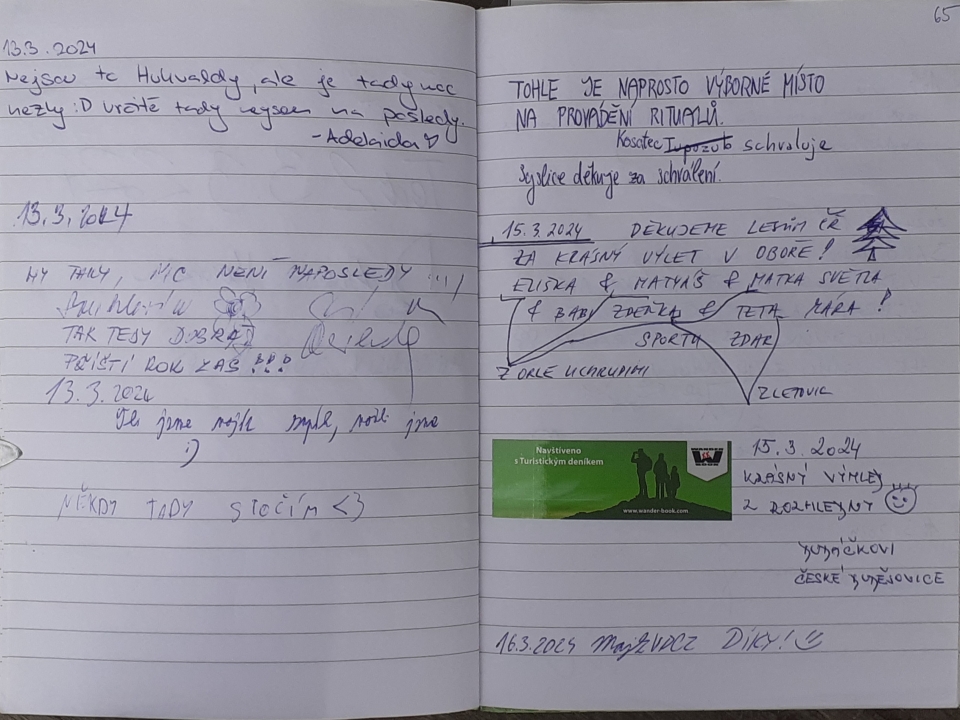 13.3.2024
Nejsou to Hukvaldy, ale je tady moc
hezky :D určitě tady nejsem na posledy.
-Adelaida
13.3.2024
MY TAKY, NIC NENÍ NAPOSLEDY !!!!
TAK TEDY DOBRÁ
PŘÍŠTÍ ROK ZAS !!!
13.3.2024
jsme
:)
NĚKDY TADY STOČÍM <3
65
TOHLE JE NAPROSTO VÝBORNÉ MÍSTO
NA PROVÁDĚNÍ RITUALŮ.
Kosatec schvaluje
Syslice děkuje za schválení.
15.3.2024 DĚKUJEME LESŮM ČR
ZA KRÁSNÝ VÝLET V OBOŘE!
ELIŠKA & MATYÁŠ & MATKA SVĚTLA
& BABI ZDEŇKA & TETA MÁRA!
SPORTU ZDAR
Z ORLE UCHRUPIMI
ZLETOVIC
Navštíveno
s Turistickým deníkem
www.wander-book.com
15.3.2024
KRÁSNÝ VÝHLED
Z ROZHLEDNY
ČESKÉ
16.3.2024 DÍKY!